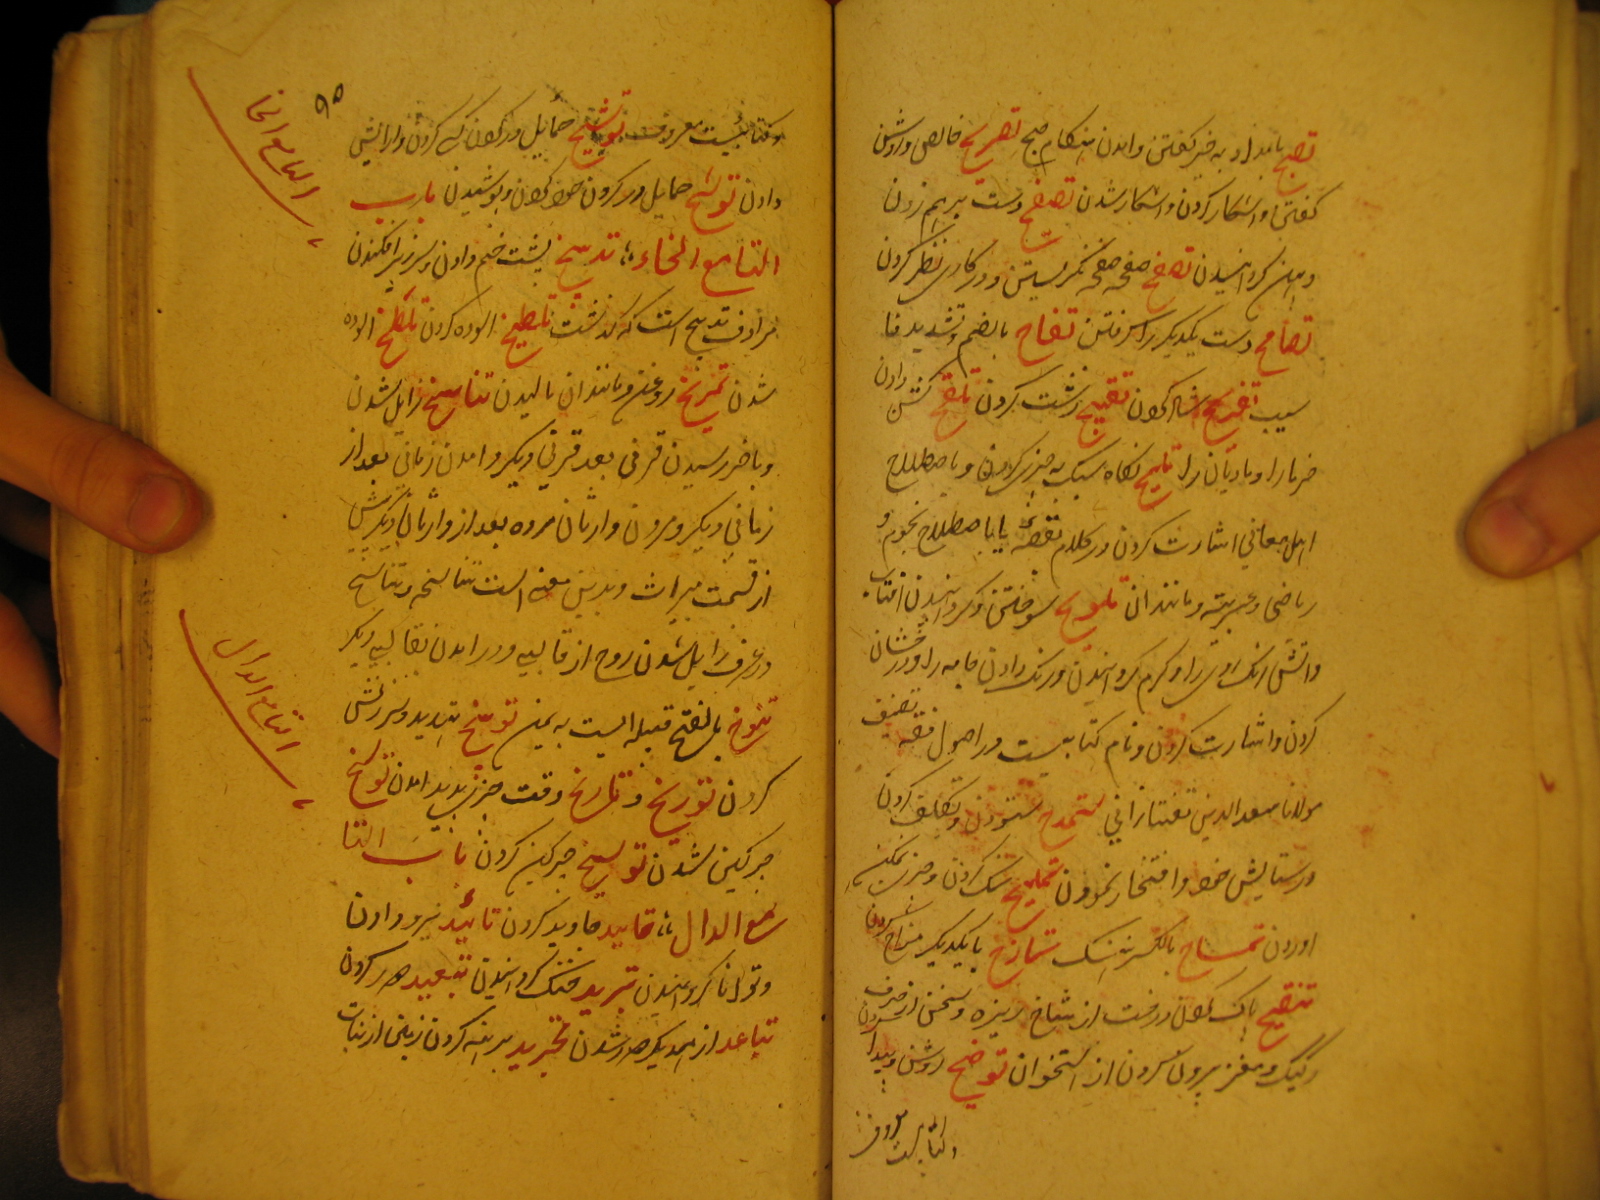 تصبیح بامداد به خیر گفتن و امدن هنگام صبح تصریح خالص و روشن
گفتن و اشکارا کردن و اشکار شدن تصفیح دست بر هم زدن
و پهن گردانیدن تصفح صفحه صفحه نگریستن و در کاری نظر کردن
تصافح دست یکدیگر را گرفتن تفاح بالضم و تشدید فا
سیب تفریح شاد کردن تقبیح زشت کردن تلقیح گشن دادن
خرما را و مادیان را تلمیح نگاه سبک به چیزی کردن و باصطلاح
اهل معانی اشارت کردن در کلام بقصه یا باصطلاح نجوم و
ریاضی و عربیه و مانند ان تلویح سوختن و گردانیدن افتاب
و اتش رنگ روی را و گرم گردانیدن و رنگ دادن جامه را و درخشان
کردن و اشارت کردن و نام کتابیست در اصول فقه تصنیف
مولانا سعد الدین تفتازانی تمدح ستودن و تکلف کردن
در ستایش خود و افتخار نمودن تملیح نمک کردن و چیزی نمکین
اوردن تمساح بالکسر نهنگ تمازح با یکدیگر مزاح کردن
تنقیح پاک کردن درخت از شاخ ریزه و سخن از حرف
رکیک و مغز بیرون کردن از استخوان توضیح روشن و پیدا کردن
و کتابیست معروف
۹۵
و کتابیست معروف توشیح حمایل در گردن کسی کردن و ارایش
دادن توشح حمایل در گردن خود کردن و پوشیدن باب
التا مع الخاء تدبیخ پشت خم دادن و سر زیر افکندن
مرادف تدبیح است که گذشت تلطیخ الوده کردن تلطخ الوده
شدن تمریخ روغن و مانند ان مالیدن تناسخ زایل شدن
و باخر رسیدن قرنی بعد قرنی دیگر و امدن زمانی بعد از
زمانی دیگر و مردن وارثان مرده بعد از وارثان دیگر پیش
از قسمت میراث و بدین معنی است تناسخه و تناسخ
در عرف زایل شدن روح از قالبی و در امدن بقالبی دیگر
تنوخ بالفتح قبیله ایست به یمن توبیخ تهدید و سرزنش
کردن توریخ و تاریخ وقت چیزی پدید امدن توسخ
چرکین شدن توسیخ چرکین کردن باب التا
مع الدال تابید جاوید کردن تائید نیرو دادن
و توانا گردانیدن تبرید خنک گردانیدن تبعید دور کردن
تباعد از همدیگر دور شدن تجرید برهنه کردن زمین از نبات
التا مع الخا
التا مع الدال